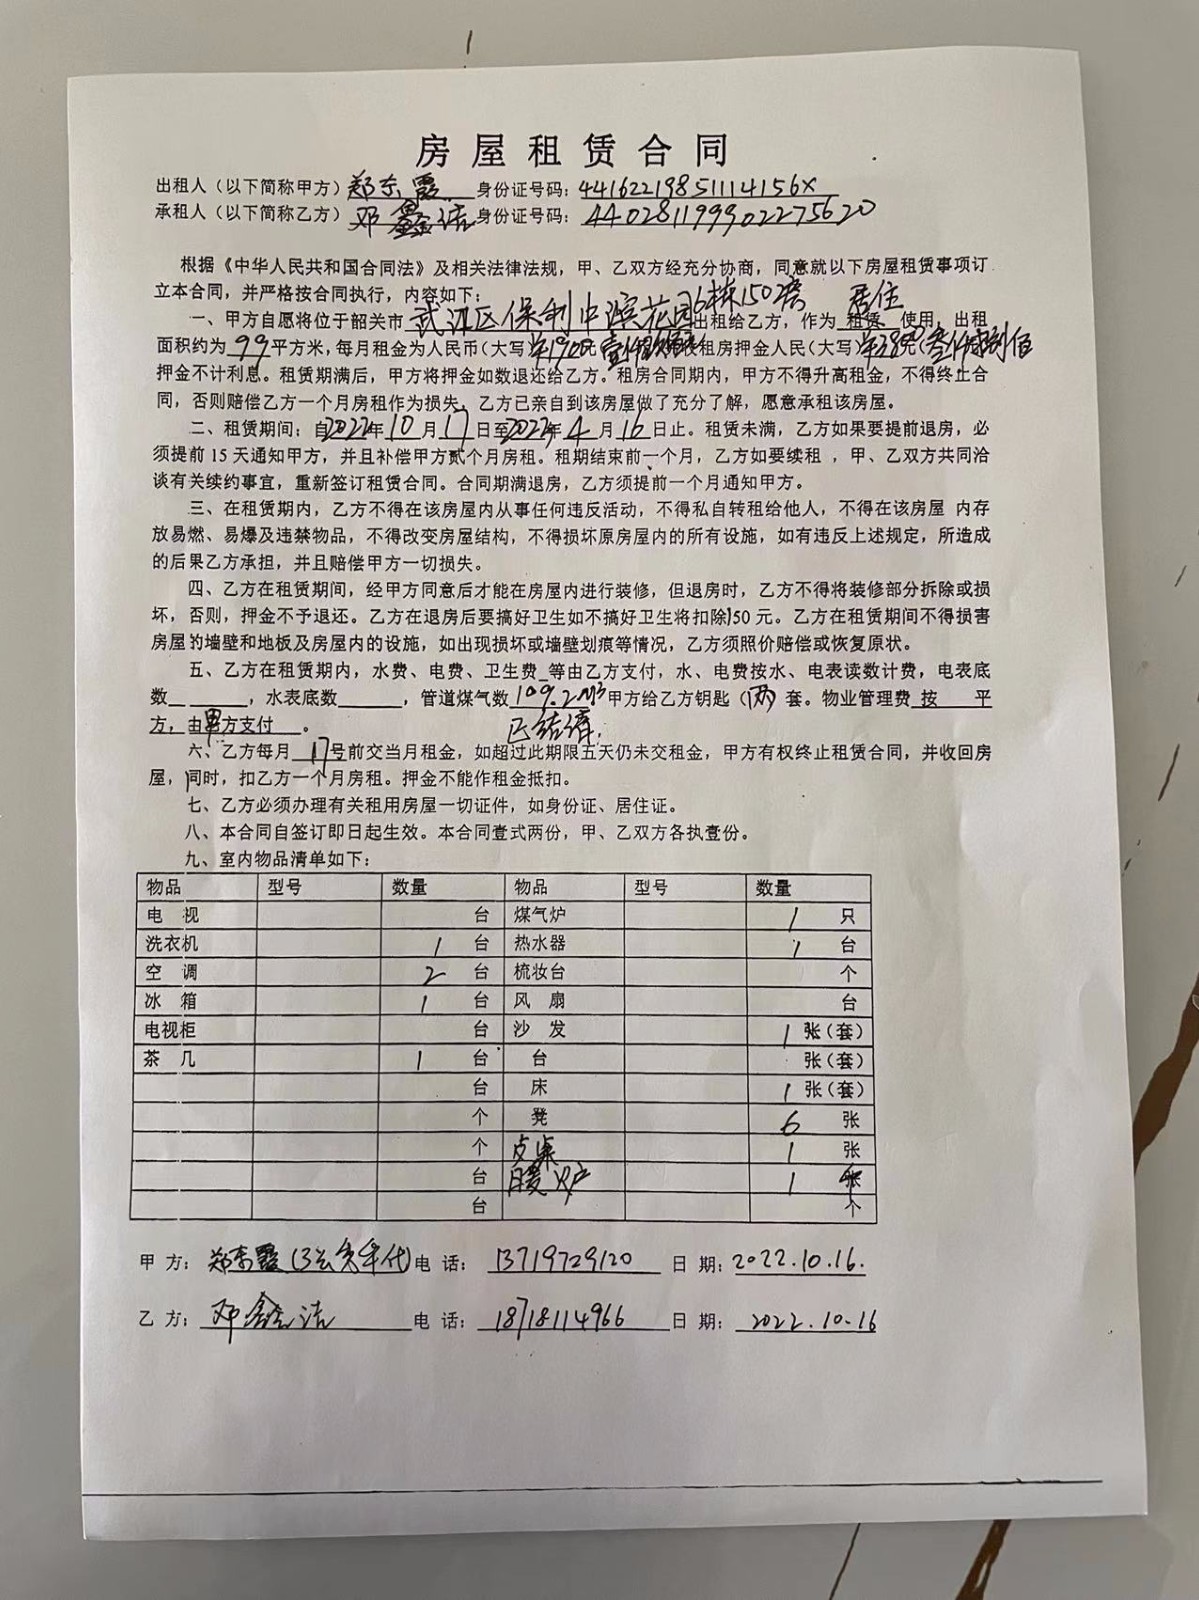 房屋租赁合同
出租人（以下简称甲方）郑东霞 身份证号码：44162219851114156X
承租人（以下简称乙方）邓鑫洁 身份证号码：440281199902275620
根据《中华人民共和国合同法》及相关法律法规，甲、乙双方经充分协商，同意就以下房屋租赁事项订
立本合同，并严格按合同执行，内容如下：
一、甲方自愿将位于韶关市 武江区保利中滨花园6栋150 出租给乙方，作为 租赁 居住 使用，出租
面积约为 99 平方米，每月租金为人民币（大写）¥1900元 收租房押金人民（大写）¥3800元（叁仟捌佰
押金不计利息。租赁期满后，甲方将押金如数退还给乙方。租房合同期内，甲方不得升高租金，不得终止合
同，否则赔偿乙方一个月房租作为损失，乙方已亲自到该房屋做了充分了解，愿意承租该房屋。
二、租赁期间：自2022年10月17日至 年4月16日止。租赁未满，乙方如果要提前退房，必
须提前15天通知甲方，并且补偿甲方贰个月房租。租期结束前一个月，乙方如要续租 ，甲、乙双方共同洽
谈有关续约事宜，重新签订租赁合同。合同期满退房，乙方须提前一个月通知甲方。
三、在租赁期内，乙方不得在该房屋内从事任何违反活动，不得私自转租给他人，不得在该房屋 内存
放易燃、易爆及违禁物品，不得改变房屋结构，不得损坏原房屋内的所有设施，如有违反上述规定，所造成
的后果乙方承担，并且赔偿甲方一切损失。
四、乙方在租赁期间，经甲方同意后才能在房屋内进行装修，但退房时，乙方不得将装修部分拆除或损
坏，否则，押金不予退还。乙方在退房后要搞好卫生如不搞好卫生将扣除150元。乙方在租赁期间不得损害
房屋的墙壁和地板及房屋内的设施，如出现损坏或墙壁划痕等情况，乙方须照价赔偿或恢复原状。
五、乙方在租赁期内，水费、电费、卫生费 等由乙方支付，水、电费按水、电表读数计费，电表底
数______，水表底数______，管道煤气数109.2m³甲方给乙方钥匙（两）套。物业管理费 按 平
方，由甲方支付 。 已结清.
六、乙方每月 17号前交当月租金，如超过此期限五天仍未交租金，甲方有权终止租赁合同，并收回房
屋，同时，扣乙方一个月房租。押金不能作租金抵扣。
七、乙方必须办理有关租用房屋一切证件，如身份证、居住证。
八、本合同自签订即日起生效。本合同壹式两份，甲、乙双方各执壹份。
九、室内物品清单如下：
物品 型号 数量 物品 型号 数量
电 视 台 煤气炉 1 只
洗衣机 1 台 热水器 1 台
空 调 2 台 梳妆台 个
冰 箱 1 台 风 扇 台
电视柜 台 沙 发 1 张（套）
茶 几 1 台 台 张（套）
台 床 1 张（套）
个 凳 6 张
个 桌 1 张
台 暖火炉 1 张
台 个
甲 方：郑东霞 电 话：13719729120 日 期：2022.10.16.
乙 方：邓鑫洁 电 话：18718114966 日 期：2022.10.16